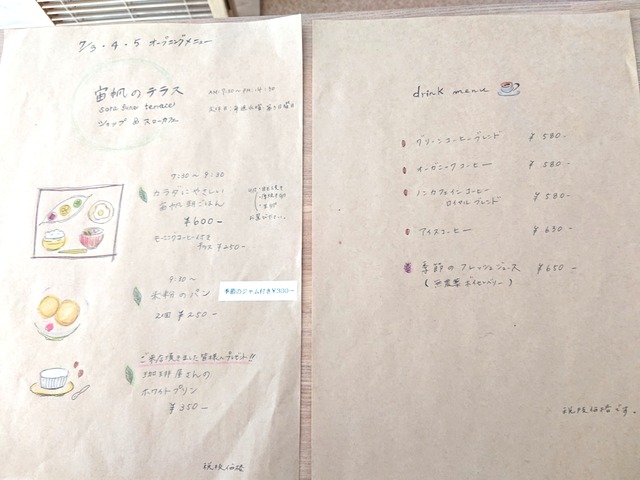 7/3・4・5 オープニングメニュー
宙帆のテラス
sora fune terrace
ショップ & スローカフェ
AM 7:30～PM 14:30
7:30～9:30
カラダにやさしい
宙帆朝ごはん
¥600-
モーニングコーヒーは
プラス ¥250-
お選びください。
9:30～
米粉のパン
2個 ¥250-
季節のジャム付き¥300-
ご来店頂きました皆様へプレゼント!!
珈琲屋さんの
ポケットプリン
¥350-
税抜価格
drink menu
グリーンコーヒーブレンド ¥580-
オーガニックコーヒー ¥580-
ノンカフェインコーヒー
ロイヤルブレンド ¥580-
アイスコーヒー ¥630-
季節のフレッシュジュース ¥650-
(無農薬ボイセンベリー)
税抜価格です。